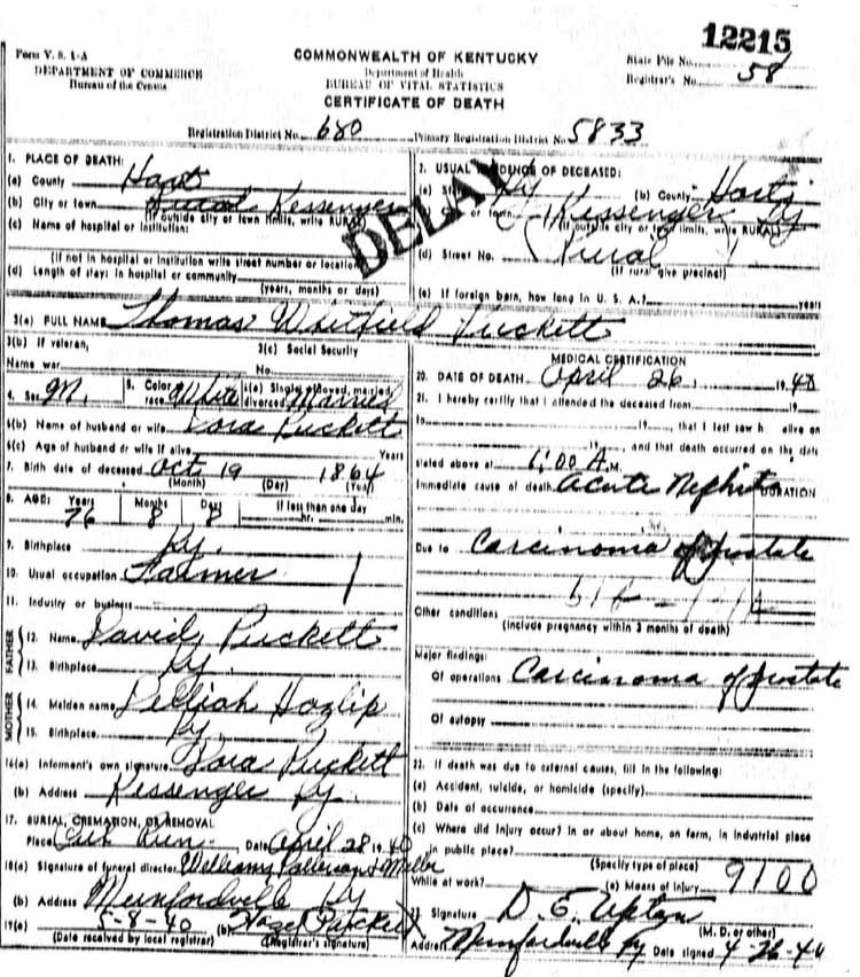 12215
Form V. S. 1-A
DEPARTMENT OF COMMERCE
Bureau of the Census
COMMONWEALTH OF KENTUCKY
Department of Health
BUREAU OF VITAL STATISTICS
CERTIFICATE OF DEATH
State File No.
Registrar's No. 58
Registration District No. 680 Primary Registration District No. 5833
DELAY
1. PLACE OF DEATH:
(a) County Hart
(b) City or town Rural Kessenger
(If outside city or town limits, write RURAL)
(c) Name of hospital or institution:
(If not in hospital or institution write street number or location)
(d) Length of stay: In hospital or community
(years, months or days)
2. USUAL OF DECEASED:
(a) Ky (b) County Hart
or town Kessenger Ky
(If outside city or town limits, write RURAL)
(d) Street No. Rural
(If rural give precinct)
(e) If foreign born, how long in U. S. A.? years
3(a) FULL NAME Thomas Whitfield Puckett
3(b) If veteran,
Name war
3(c) Social Security
No.
4. Sex M. 5. Color race White 6(a) Single, widowed, married, divorced Married
6(b) Name of husband or wife Dora Puckett
6(c) Age of husband or wife if alive Years
7. Birth date of deceased Oct 19 1864
(Month) (Day) (Year)
8. AGE: Years Months Days If less than one day
76 8 8 hr. min.
9. Birthplace Ky.
10. Usual occupation Farmer
11. Industry or business
FATHER
12. Name David Puckett
13. Birthplace Ky.
MOTHER
14. Maiden name Hazlip
15. Birthplace Ky.
16(a) Informent's own signature Dora Puckett
(b) Address Kessenger Ky.
17. BURIAL, CREMATION, OR REMOVAL
Place Cub Run Date April 28 1940
18(a) Signature of funeral director
(b) Address Munfordville Ky
19(a) 5-8-40 (b) Hazel Puckett
(Date received by local registrar) (Registrar's signature)
MEDICAL CERTIFICATION
20. DATE OF DEATH April 26, 1940
21. I hereby certify that I attended the deceased from 19
to 19, that I last saw h alive on
19, and that death occurred on the date
stated above at 6:00 A.M.
Immediate cause of death Acute Nephritis DURATION
Due to Carcinoma of prostate
Other conditions
(Include pregnancy within 3 months of death)
Major findings:
Of operations Carcinoma of prostate
Of autopsy
22. If death was due to external causes, fill in the following:
(a) Accident, suicide, or homicide (specify)
(b) Date of occurrence
(c) Where did injury occur? In or about home, on farm, in industrial place
in public place?
(Specify type of place)
While at work? (e) Means of injury 9100
Signature D. E. Upton
(M. D. or other)
Address Munfordville Ky Date signed 4-26-40